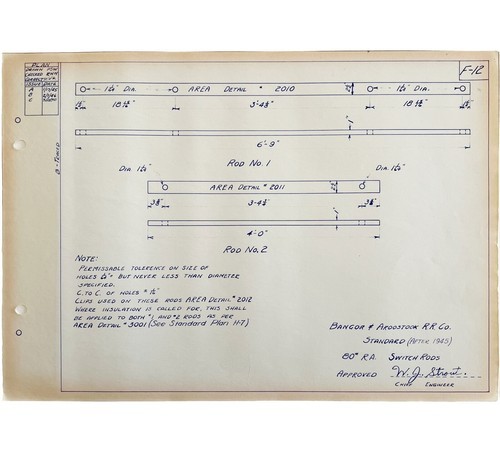 F-12
PLAN
ISSUE DATE
A
B
C
1 1/16" DIA.
AREA DETAIL # 2010
1 1/16" DIA.
3'-4 1/2"
6'-9"
ROD NO. 1
DIA. 1 1/16"
AREA DETAIL # 2011
DIA. 1 1/16"
3'-4 1/2"
4'-0"
ROD NO. 2
NOTE:
PERMISSABLE TOLERENCE ON SIZE OF
HOLES BUT NEVER LESS THAN DIAMETER
SPECIFIED.
C. TO C. OF HOLES
CLIPS USED ON THESE RODS AREA DETAIL # 2012
WHERE INSULATION IS CALLED FOR, THIS SHALL
BE APPLIED TO BOTH #1 AND #2 RODS AS PER
AREA DETAIL # 3001 (SEE STANDARD PLAN H-7)
BANGOR & AROOSTOOK R.R. CO.
STANDARD (AFTER 1945)
80# R.A. SWITCH RODS
APPROVED W. J. Strout.
CHIEF ENGINEER